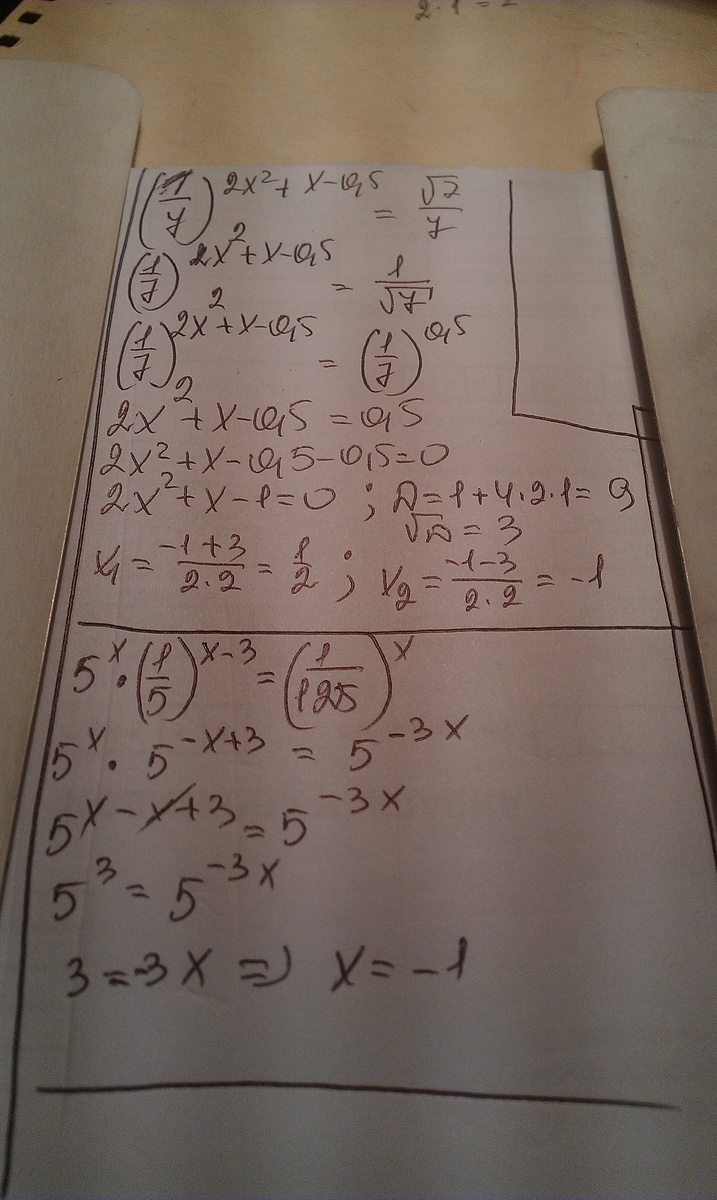 2·1=2
(1/7)^(2x²+x-0,5) = √7/7
(1/7)^(2x²+x-0,5) = 1/√7
(1/7)^(2x²+x-0,5) = (1/7)^0,5
2x²+x-0,5=0,5
2x²+x-0,5-0,5=0
2x²+x-1=0 ; D=1+4·2·1=9
√D=3
x₁ = (-1+3)/(2·2) = 1/2 ; x₂ = (-1-3)/(2·2) = -1
5^x · (1/5)^(x-3) = (1/125)^x
5^x · 5^(-x+3) = 5^(-3x)
5^(x-x+3) = 5^(-3x)
5^3 = 5^(-3x)
3=-3x => x=-1